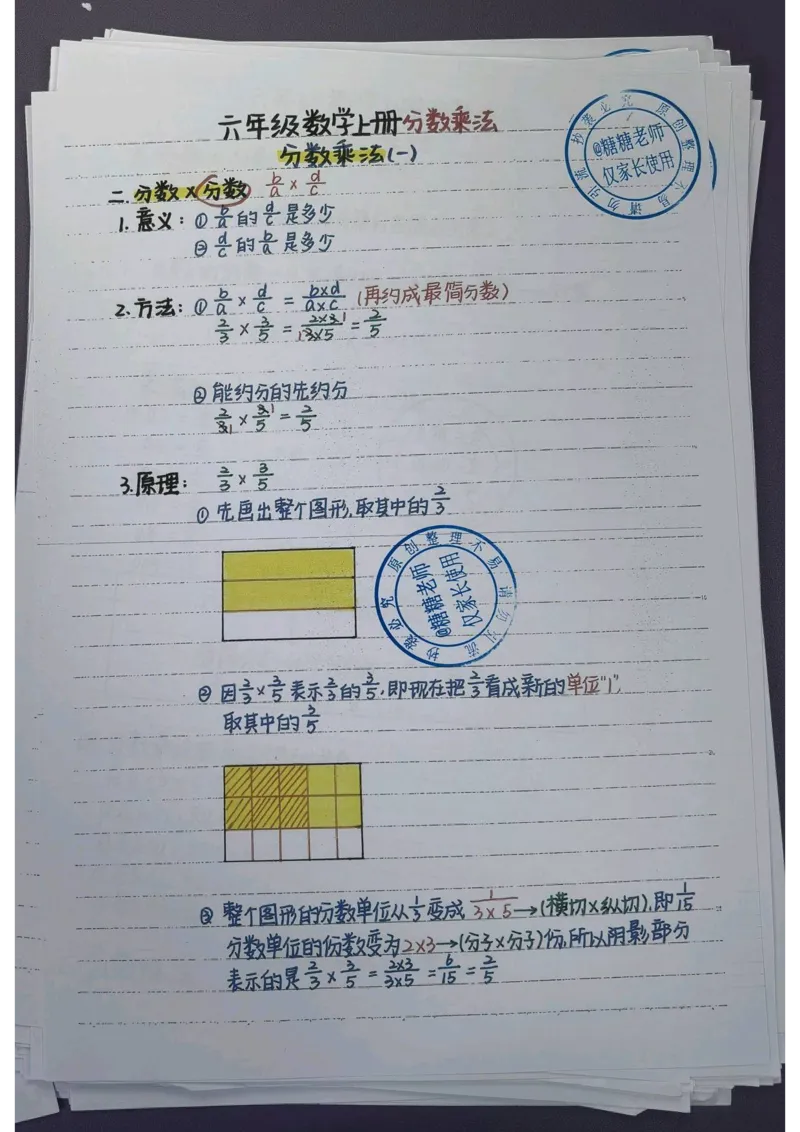 六年级数学上册分数乘法
分数乘法(一)
二.分数×分数 b/a × d/c
1.意义：① b/a 的 d/c 是多少
② d/c 的 b/a 是多少
2.方法：① b/a × d/c = b×d/a×c (再约成最简分数)
2/3 × 3/5 = 2×3/3×5 = 2/5
② 能约分的先约分
2/3 × 3/5 = 2/5
3.原理： 2/3 × 3/5
① 先画出整个图形,取其中的 2/3
② 因 2/3 × 3/5 表示 2/3 的 3/5,即现在把 2/3 看成新的单位"1",
取其中的 3/5
③ 整个图形的分数单位从 1/3 变成 1/3×5 →(横切×纵切),即 1/15
分数单位的份数变为2×3→(分子×分子)份,所以阴影部分
表示的是 2/3 × 3/5 = 2×3/3×5 = 6/15 = 2/5
@糖糖老师
仅家长使用
原创整理不易 请勿引流 抄袭必究
@糖糖老师
仅家长使用
原创整理不易 请勿引流 抄袭必究